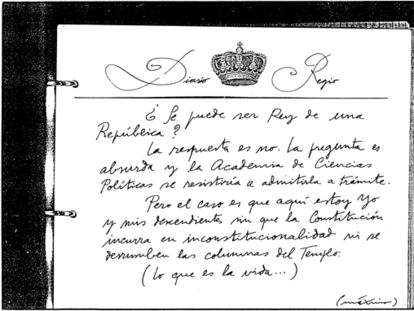 Diario Regio
¿Se puede ser Rey de una
República?
La respuesta es no. La pregunta es
absurda y la Academia de Ciencias
Políticas se resistiría a admitirla a trámite.
Pero el caso es que aquí estoy yo
y mis descendientes sin que la Constitución
incurra en inconstitucionalidad ni se
derrumben las columnas del Templo.
(Lo que es la vida...)
(máximo)